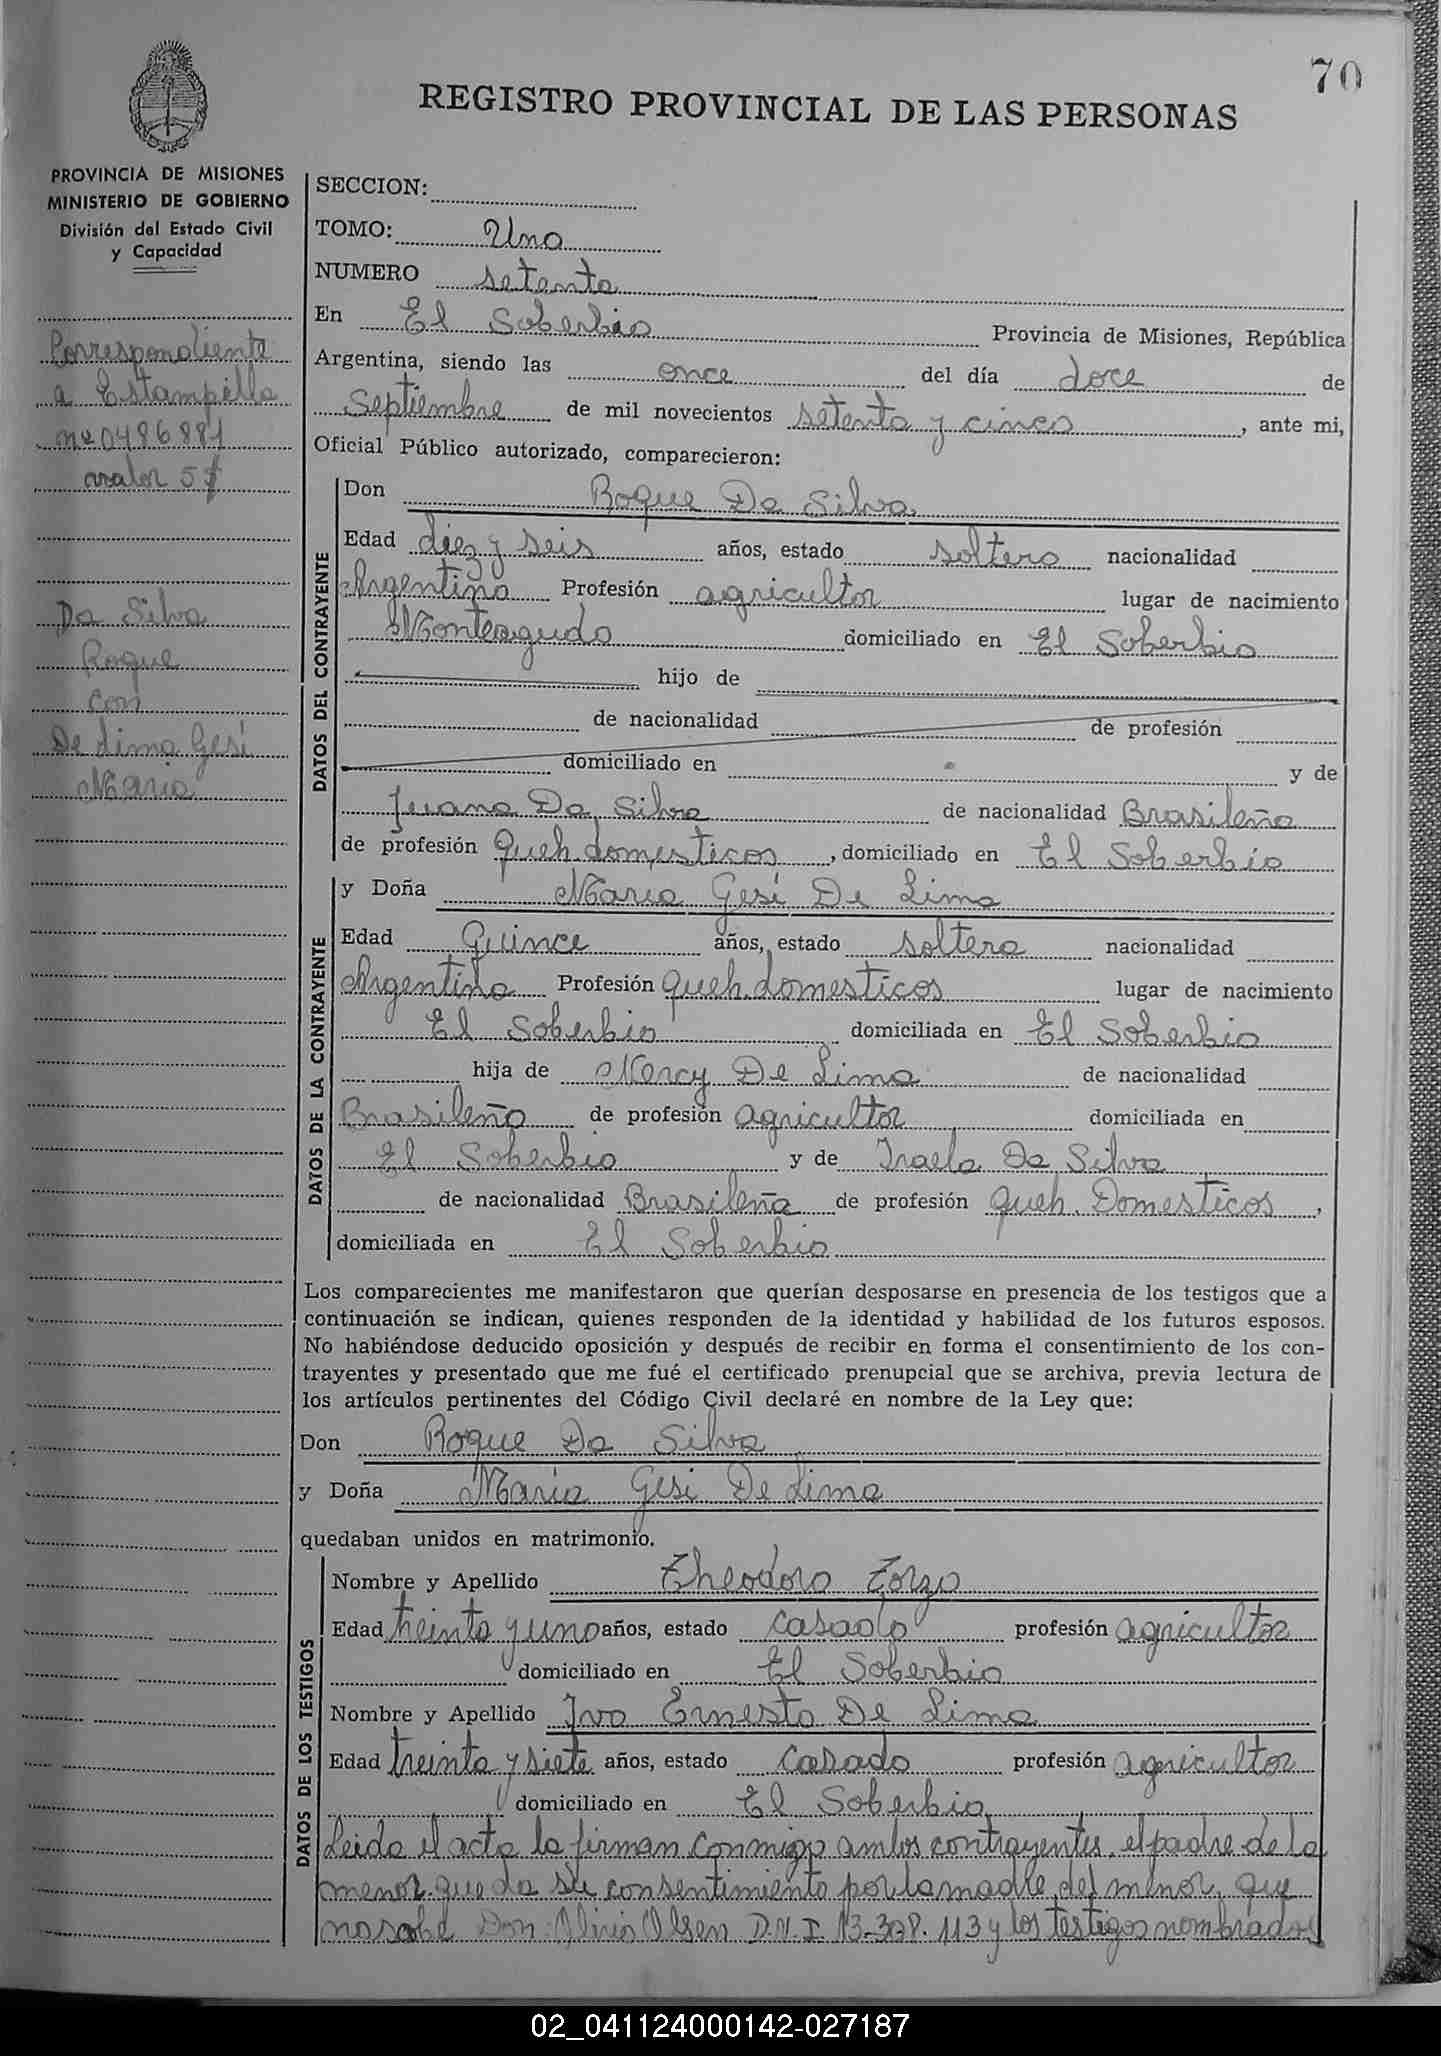 70
REGISTRO PROVINCIAL DE LAS PERSONAS
PROVINCIA DE MISIONES
MINISTERIO DE GOBIERNO
División del Estado Civil
y Capacidad
Correspondiente
a Estampilla
nº 0486881
valor 5$
Da Silva
Roque
con
De Lima Gesi
Maria
SECCION:
TOMO: Uno
NUMERO setenta
En El Soberbio Provincia de Misiones, República
Argentina, siendo las once del día doce de
Septiembre de mil novecientos setenta y cinco, ante mi,
Oficial Público autorizado, comparecieron:
DATOS DEL CONTRAYENTE
Don Roque Da Silva
Edad diez y seis años, estado soltero nacionalidad
Argentina Profesión agricultor lugar de nacimiento
Monteagudo domiciliado en El Soberbio
hijo de
de nacionalidad de profesión
domiciliado en y de
Juana Da Silva de nacionalidad Brasileña
de profesión Queh. domesticos, domiciliado en El Soberbio
DATOS DE LA CONTRAYENTE
y Doña Maria Gesi De Lima
Edad Quince años, estado soltera nacionalidad
Argentina Profesión queh. domesticos lugar de nacimiento
El Soberbio domiciliada en El Soberbio
hija de Nercy De Lima de nacionalidad
Brasileño de profesión agricultor domiciliada en
El Soberbio y de Iraela Da Silva
de nacionalidad Brasileña de profesión queh. Domesticos,
domiciliada en El Soberbio
Los comparecientes me manifestaron que querían desposarse en presencia de los testigos que a
continuación se indican, quienes responden de la identidad y habilidad de los futuros esposos.
No habiéndose deducido oposición y después de recibir en forma el consentimiento de los con-
trayentes y presentado que me fué el certificado prenupcial que se archiva, previa lectura de
los artículos pertinentes del Código Civil declaré en nombre de la Ley que:
Don Roque Da Silva
y Doña Maria Gesi De Lima
quedaban unidos en matrimonio.
DATOS DE LOS TESTIGOS
Nombre y Apellido Theodoro Zorzo
Edad treinta y uno años, estado casado profesión agricultor
domiciliado en El Soberbio
Nombre y Apellido Ivo Ernesto De Lima
Edad treinta y siete años, estado casado profesión agricultor
domiciliado en El Soberbio
Leida el acta la firman conmigo ambos contrayentes, el padre de la
menor que da su consentimiento por la madre del menor, que
no sabe Don Olsen D.N.I. y los testigos nombrados
02_041124000142-027187